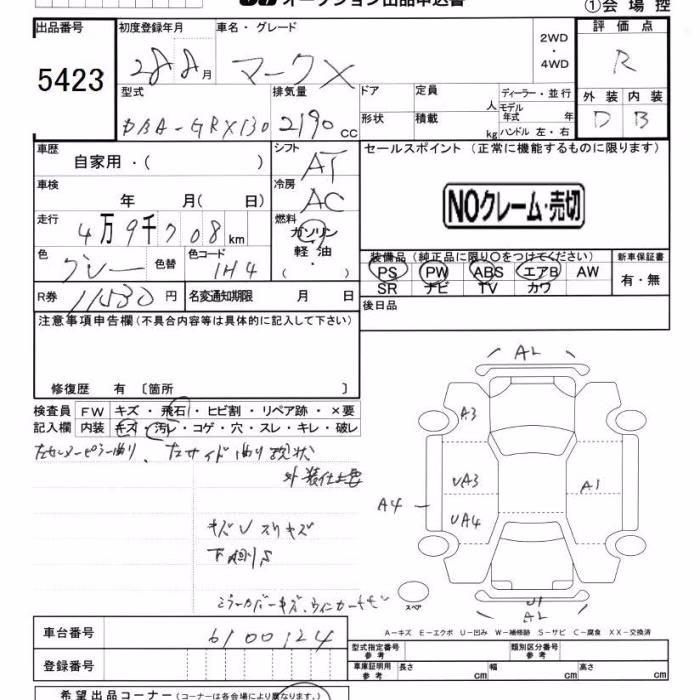 オークション出品申込書
①会場控
出品番号
5423
初度登録年月
28 8 月
車名・グレード
マークX
2WD
・
4WD
評価点
R
外装 内装
D B
型式
DBA-GRX130
排気量
2190 cc
ドア
形状
定員 人
積載 kg
ディーラー・並行
モデル年式 年
ハンドル 左・右
車歴
自家用・( )
シフト
AT
車検
年 月( 日)
冷房
AC
走行
4万9千708 km
燃料
ガソリン
軽油
・( )
色
グレー
色替
色コード
1H4
R券 11530 円
名変通知期限 月 日
セールスポイント (正常に機能するものに限ります)
NOクレーム・売切
装備品 (純正品に限り○をつけてください)
PS PW ABS エアB AW
SR ナビ TV カワ
新車保証書
有・無
後日品
注意事項申告欄(不具合内容等は具体的に記入して下さい)
修復歴 有 〔箇所 〕
検査員 FW キズ・飛石・ヒビ割・リペア跡・×要
記入欄 内装 キズ・汚レ・コゲ・穴・スレ・キレ・破レ
左センターピラー曲り、左サイド曲り現状
外装仕上要
キズUスリキズ
下廻りS
ミラーカバーキズ、ウィンカー
AL
A3
UA3
A1
A4
UA4
スペア
U1
AL
A-キズ E-エクボ U-凹み W-補修跡 S-サビ C-腐食 XX-交換済
車台番号 6100124
登録番号
型式指定番号 参考
類別区分番号 参考
車庫証明用 参考 長さ cm 幅 cm 高さ cm
希望出品コーナー (コーナーは各会場により異なります。)